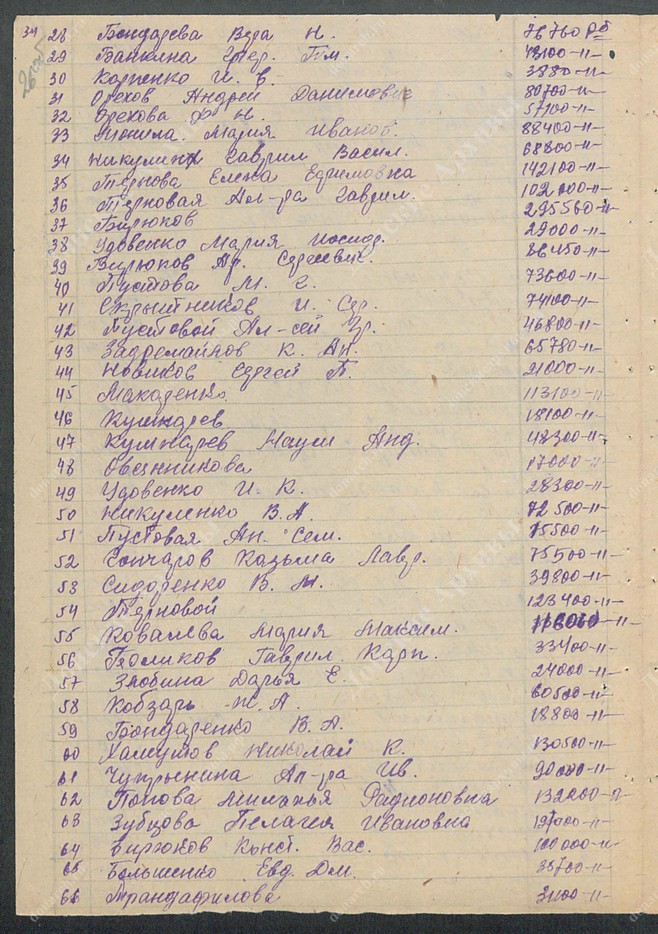 34
28 Бондарева Вера Н. 76760 рб
29 Банкина Гр. Тим. 43100-"-
30 Карпенко И. Е. 3880-"-
31 Орехов Андрей Данилович 80700-"-
32 Орехова Ф. Н. 57100-"-
33 Мария Иванов. 88400-"-
34 Никулин Гаврил Васил. 68800-"-
35 Тернова Елена Ефимовна 142100-"-
36 Терновая Ал-ра Гаврил. 102000-"-
37 Бирюков 295560-"-
38 Удовенко Мария Иосиф. 29000-"-
39 Бирюков Ар. Сергеевич. 86450-"-
40 Пустова М. Г. 73600-"-
41 Скрытников И. Сер. 74100-"-
42 Пустовой Ал-сей Гр. 46800-"-
43 К. Ан. 65780-"-
44 Новиков Сергей П. 21000-"-
45 Макаренко 113100-"-
46 Кушнарев 18100-"-
47 Кушнарев Наум Анд. 48300-"-
48 Овсянникова 17000-"-
49 Удовенко И. К. 28300-"-
50 Никуленко В. А. 72500-"-
51 Пустовая Ан. Сем. 75500-"-
52 Гончаров Козьма Лавр. 75500-"-
53 Сидоренко В. М. 39800-"-
54 Терновой 123400-"-
55 Ковалева Мария Максим.
56 Поликов Гаврил Карп. 33400-"-
57 Злобина Дарья Е. 24000-"-
58 Кобзарь М. А. 60500-"-
59 Бондаренко В. А. 18800-"-
60 Хамутов Николай К. 130500-"-
61 Чупрынина Ал-ра Ив. 90000-"-
62 Попова Миланья Родионовна 132000-"-
63 Зубцова Пелагея Ивановна
64 Бирюков Конст. Вас. 100000-"-
65 Большенко Евд. Дм. 35700-"-
66 Трандафилова 31100-"-